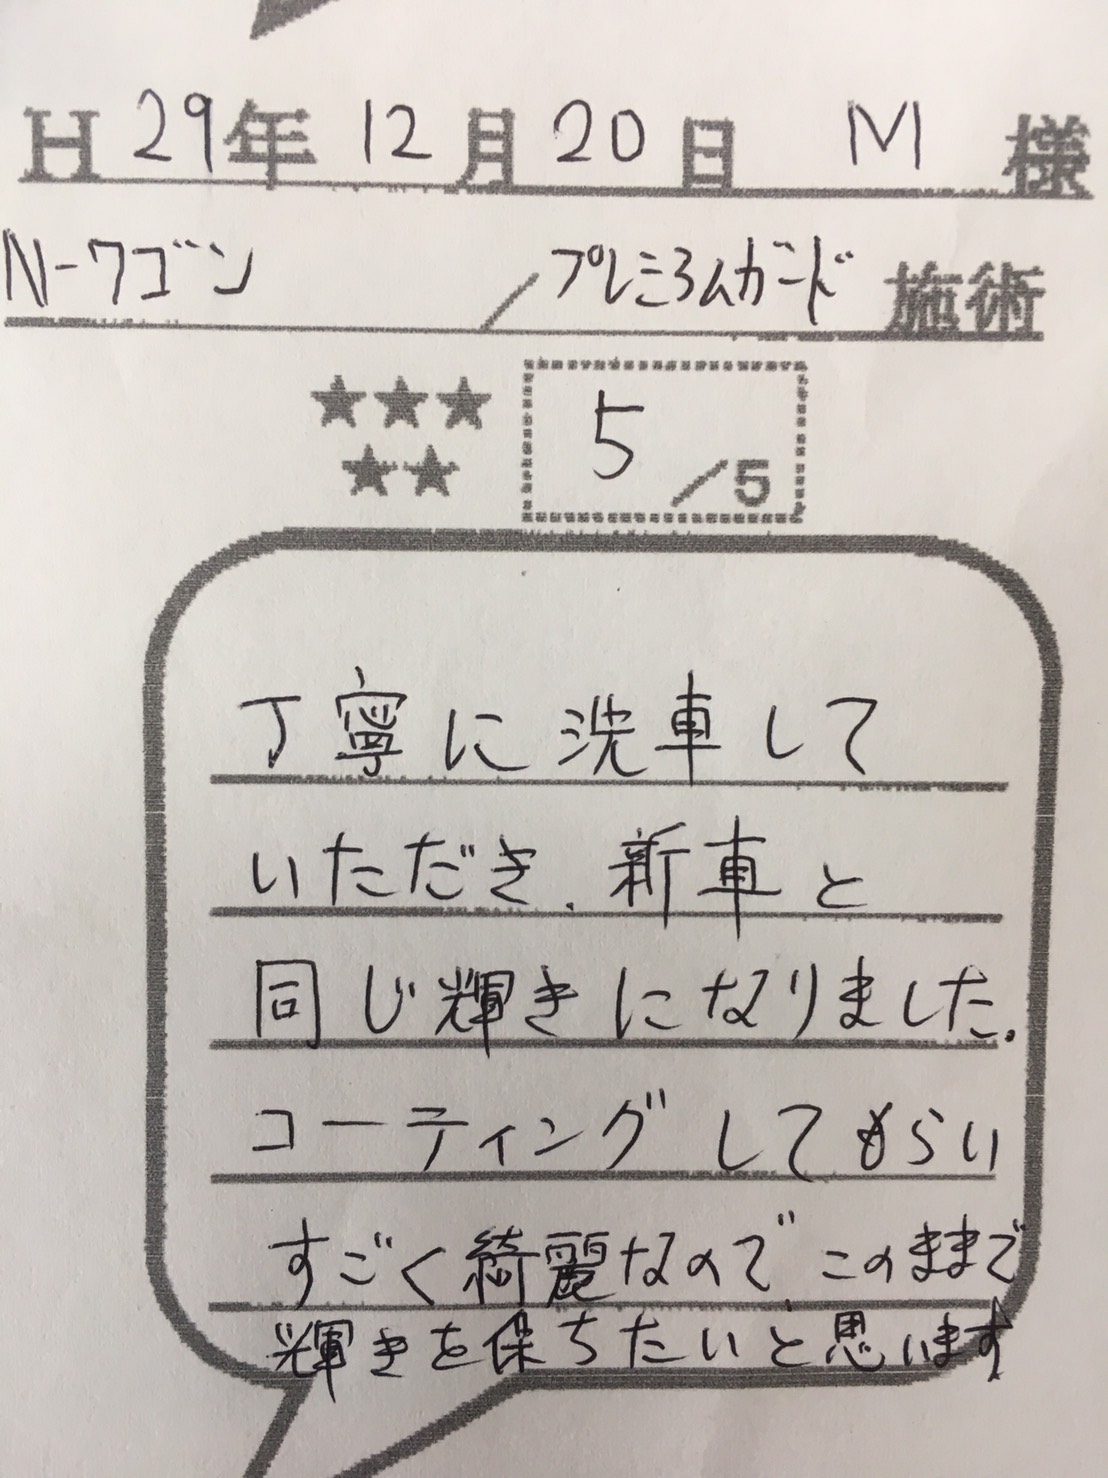 H 29年 12月 20日 M 様
N-ワゴン / プレミアムガード 施術
★★★ 5/5
★★
丁寧に洗車して
いただき、新車と
同じ輝きになりました。
コーティングしてもらい
すごく綺麗なので、このままで
輝きを保ちたいと思います